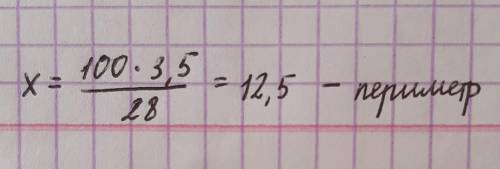 x = 100 · 3,5 / 28 = 12,5 – периметр